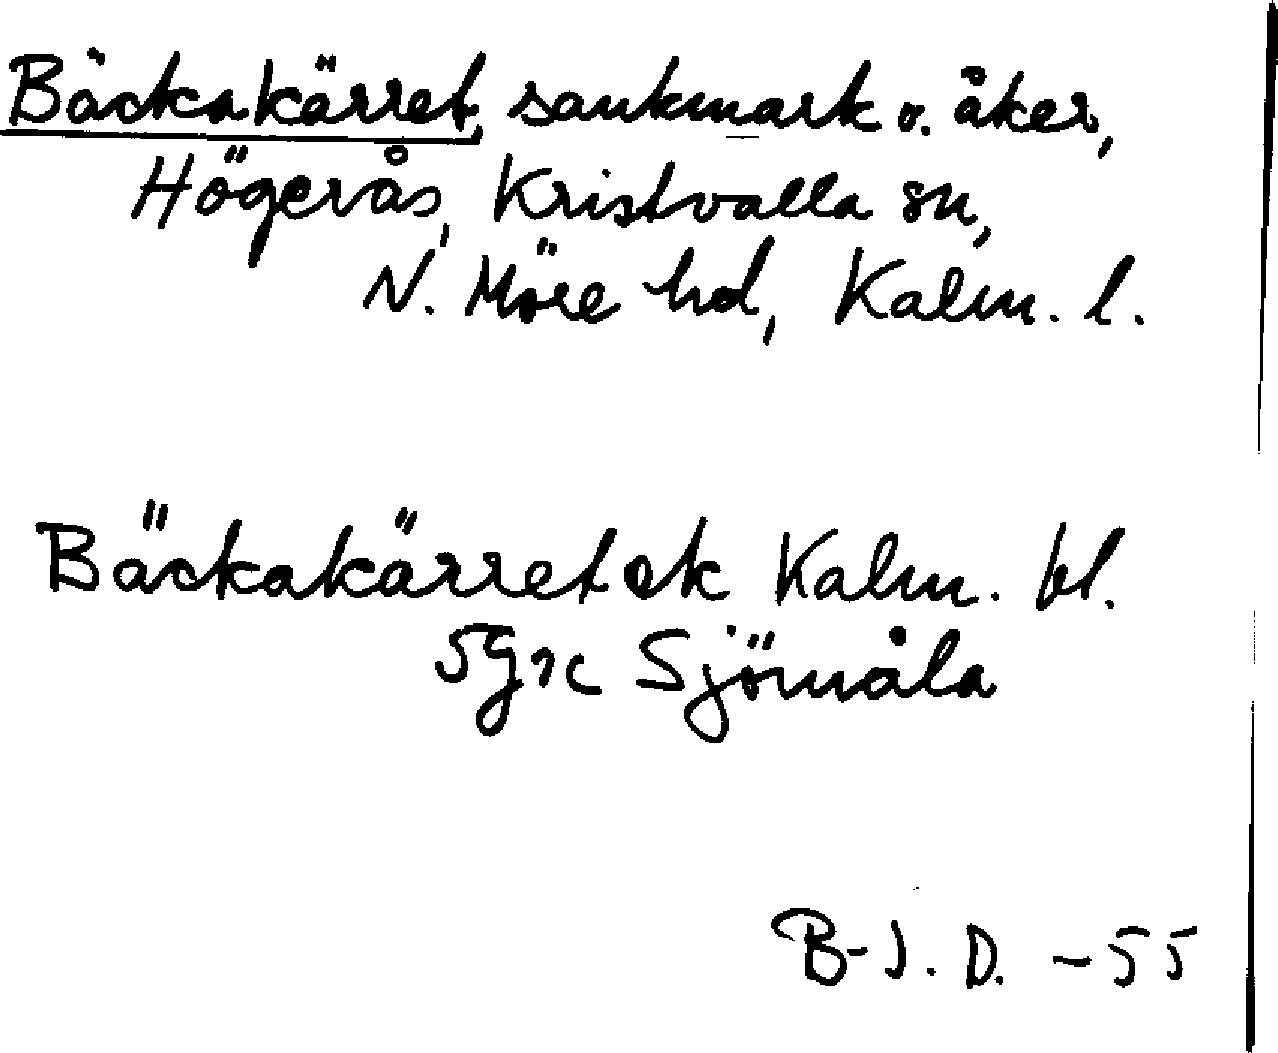 Bäckakärret, sankmark o. åker,
Högerås, Kristvalla sn,
N. Möre hd, Kalm. l.
Bäckakärret ek Kalm. bl.
5g Sjömåla
B-J. D. -55